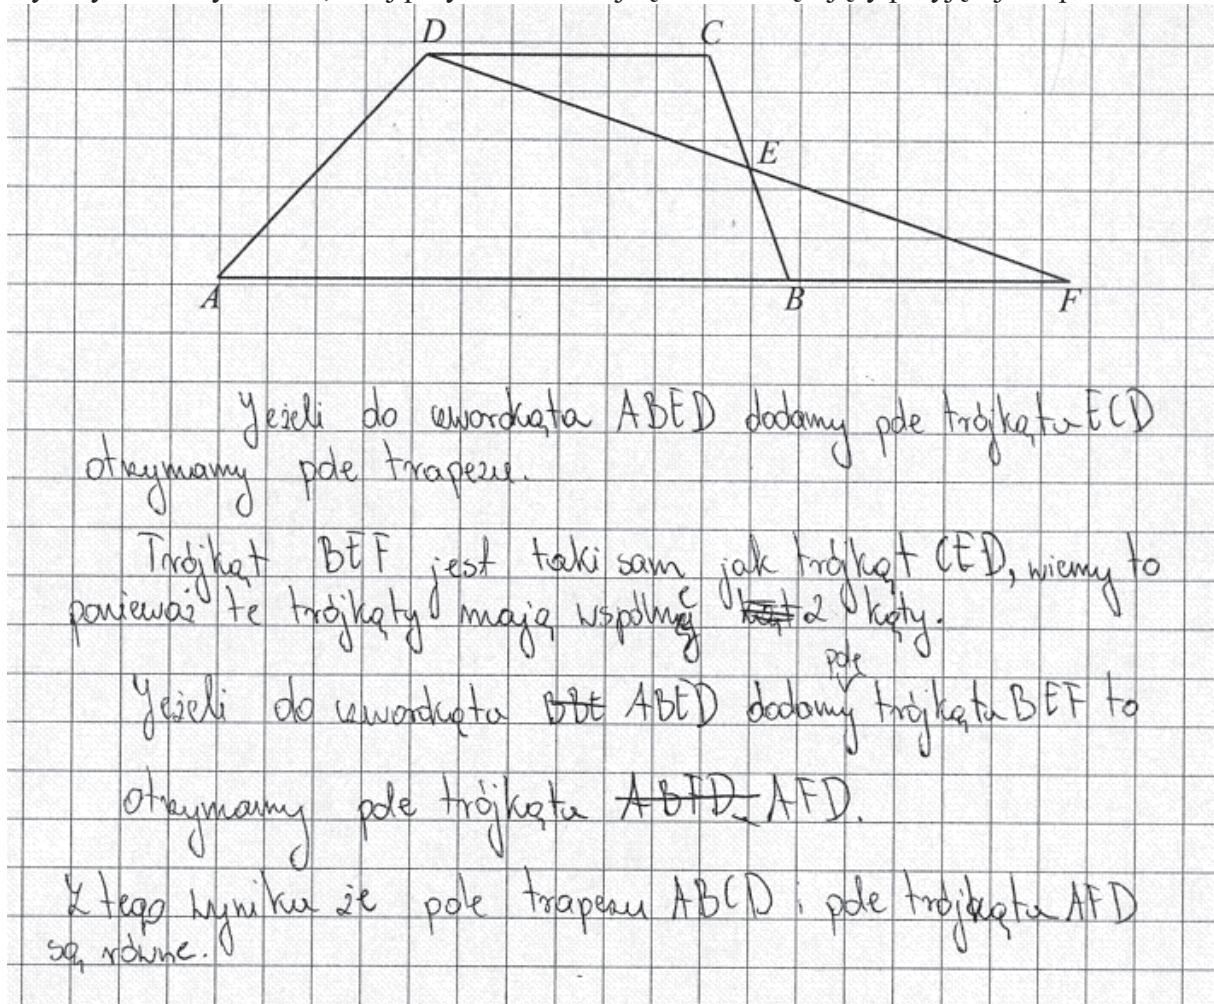 D C
E
A B F
Jeżeli do czworokąta ABED dodamy pole trójkąta ECD
otrzymamy pole trapezu.
Trójkąt BEF jest taki sam jak trójkąt CED, wiemy to
ponieważ te trójkąty mają wspólne 2 kąty.
pole
Jeżeli do czworokąta BBE ABED dodamy trójkąta BEF to
otrzymamy pole trójkąta ABFD AFD.
Z tego wynika że pole trapezu ABCD i pole trójkąta AFD
są równe.